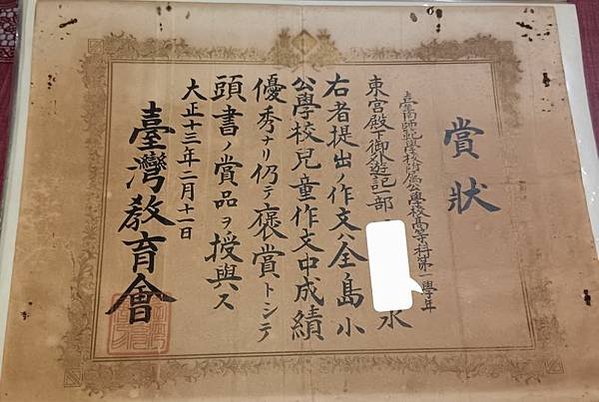 賞狀
臺南師範學校附屬公學校高等科第一學年
永
東宮殿下御外遊記一部
右者提出ノ作文全島小
公學校兒童作文中成績
優秀ナリ仍テ褒賞トシテ
頭書ノ賞品ヲ授與ス
大正十三年二月十一日
臺灣教育會